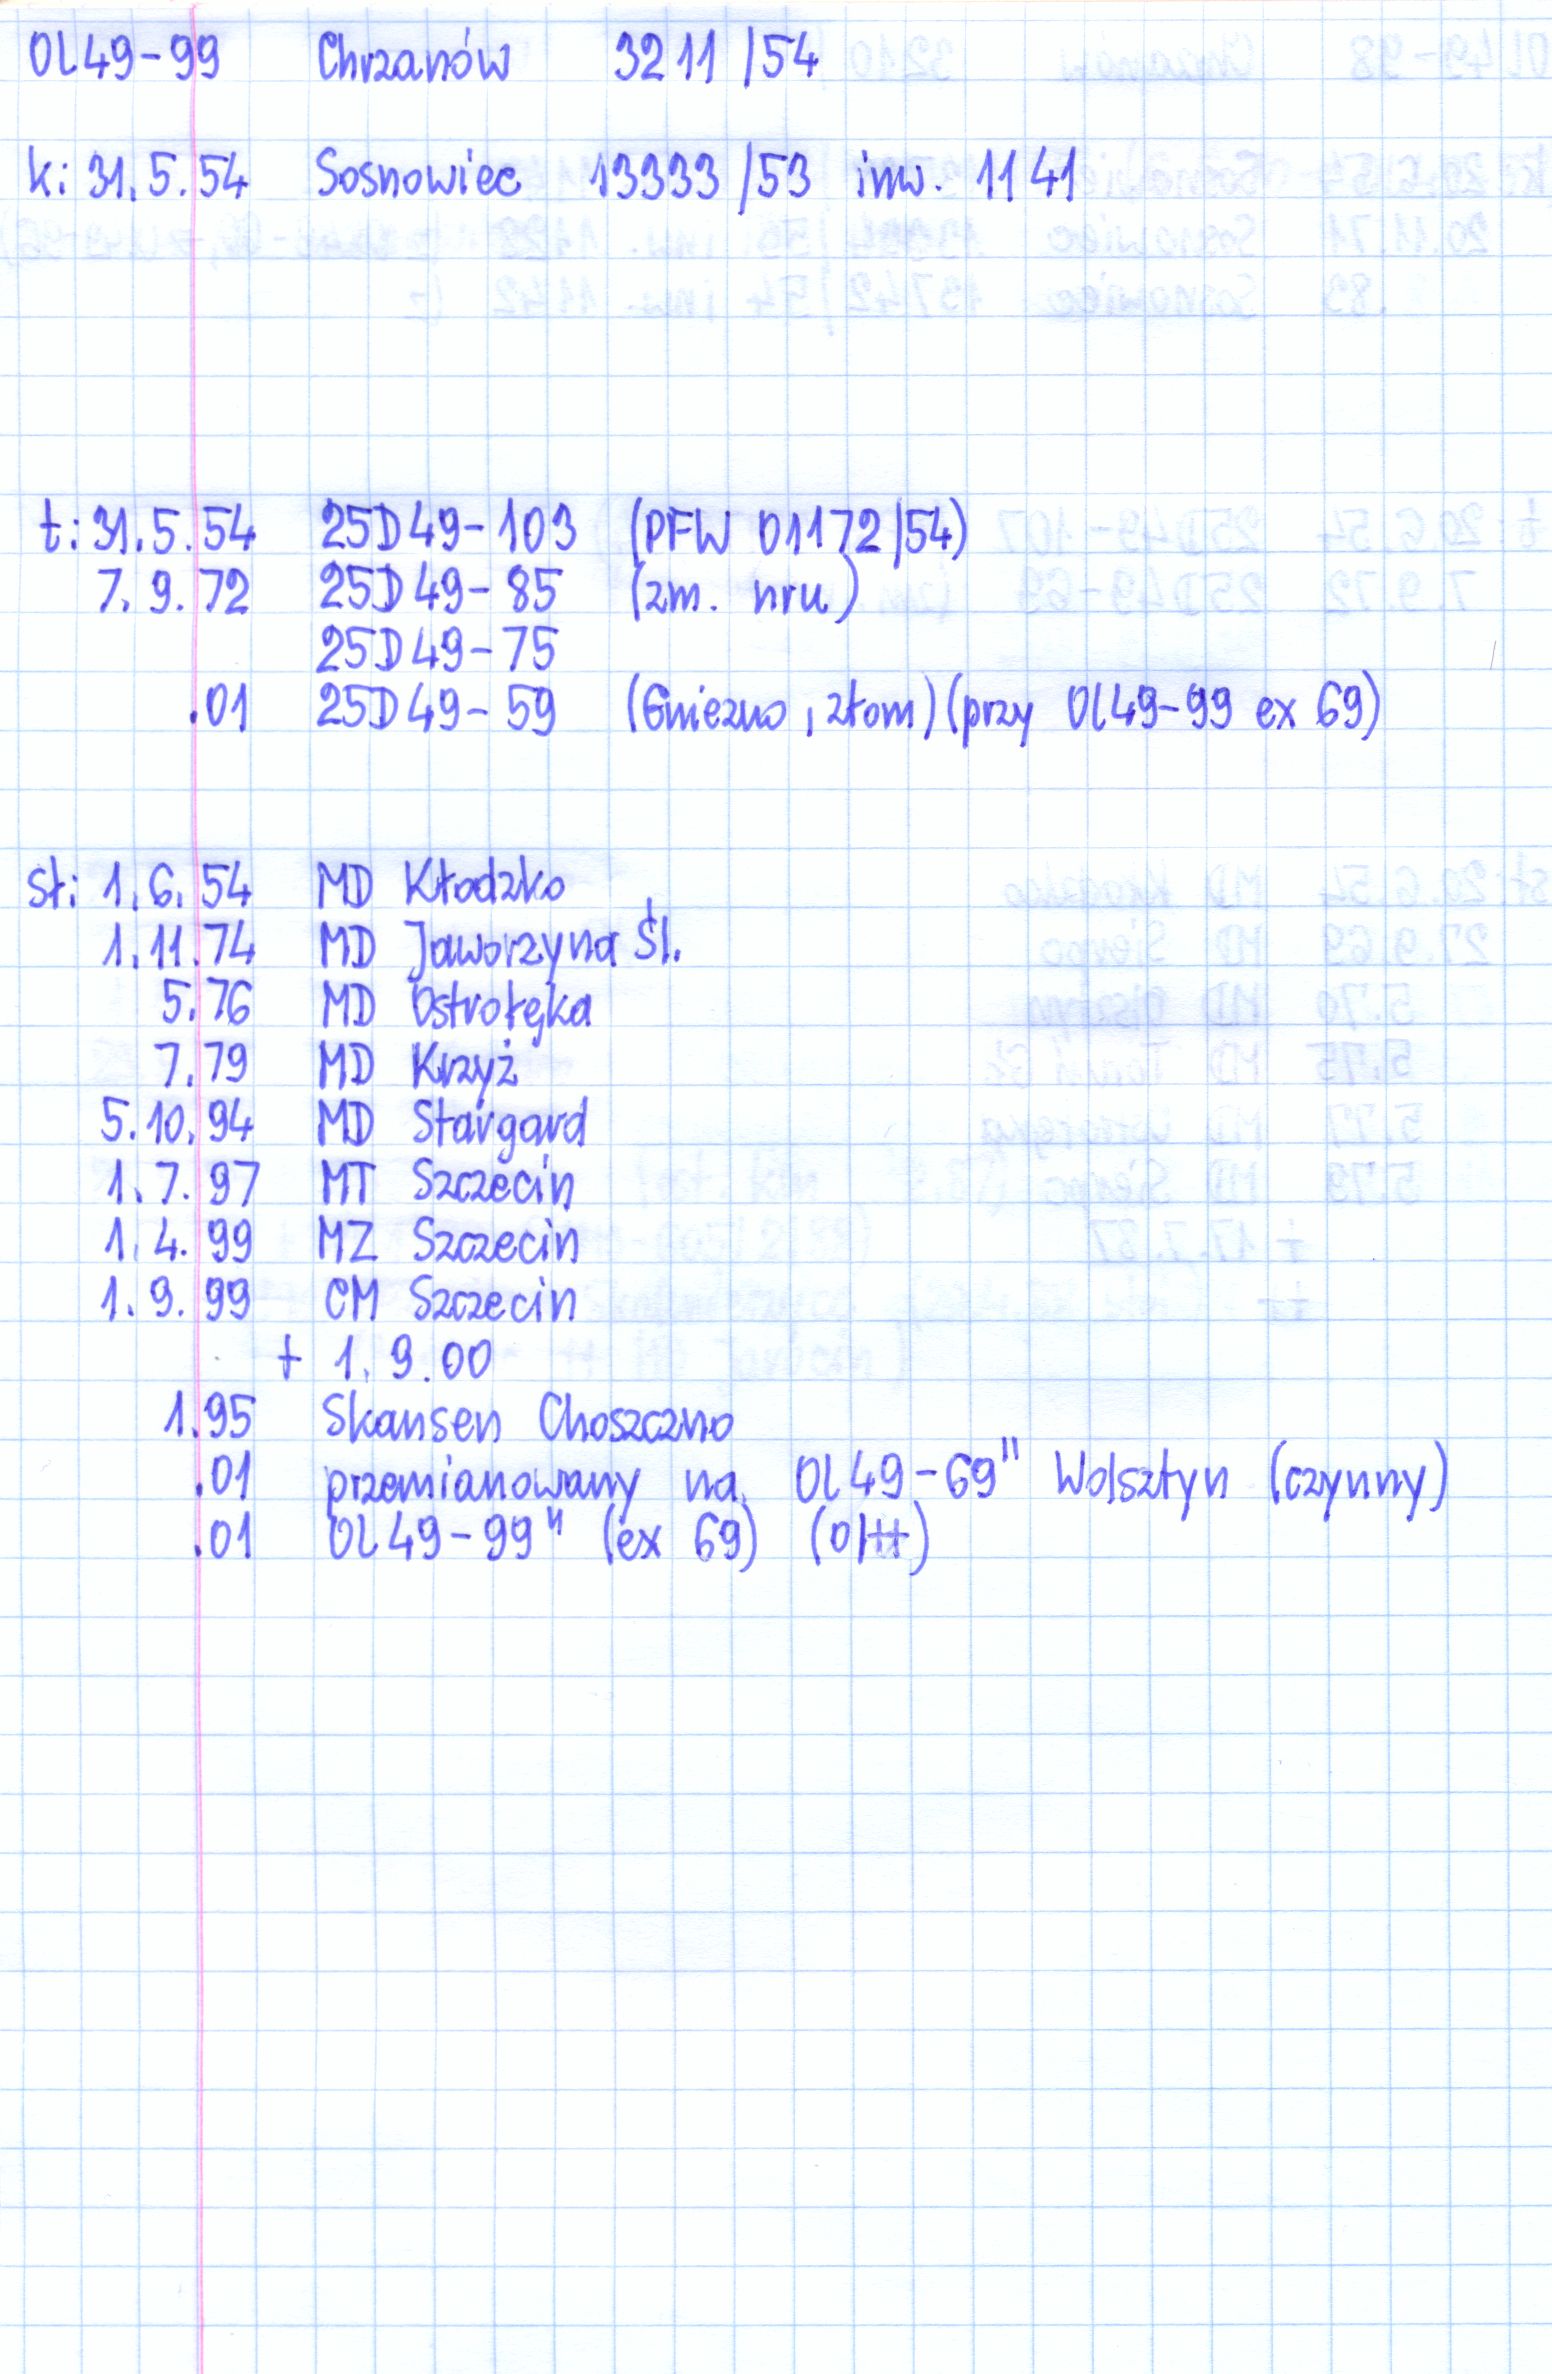 Ol49-99 Chrzanów 3211/54
k: 31.5.54 Sosnowiec 13333/53 inw. 1141
t: 31.5.54 25D49-103 (PFW 01172/54)
7.9.72 25D49-85 (zm. nru)
25D49-75
.01 25D49-59 (Gniezno, złom) (przy Ol49-99 ex 69)
st: 1.6.54 MD Kłodzko
1.11.74 MD Jaworzyna Śl.
5.76 MD Ostrołęka
7.79 MD Krzyż
5.10.94 MD Stargard
1.7.97 MT Szczecin
1.4.99 MZ Szczecin
1.9.99 CM Szczecin
+ 1.9.00
1.95 Skansen Choszczno
.01 przemianowany na Ol49-69" Wolsztyn (czynny)
.01 Ol49-99" (ex 69)